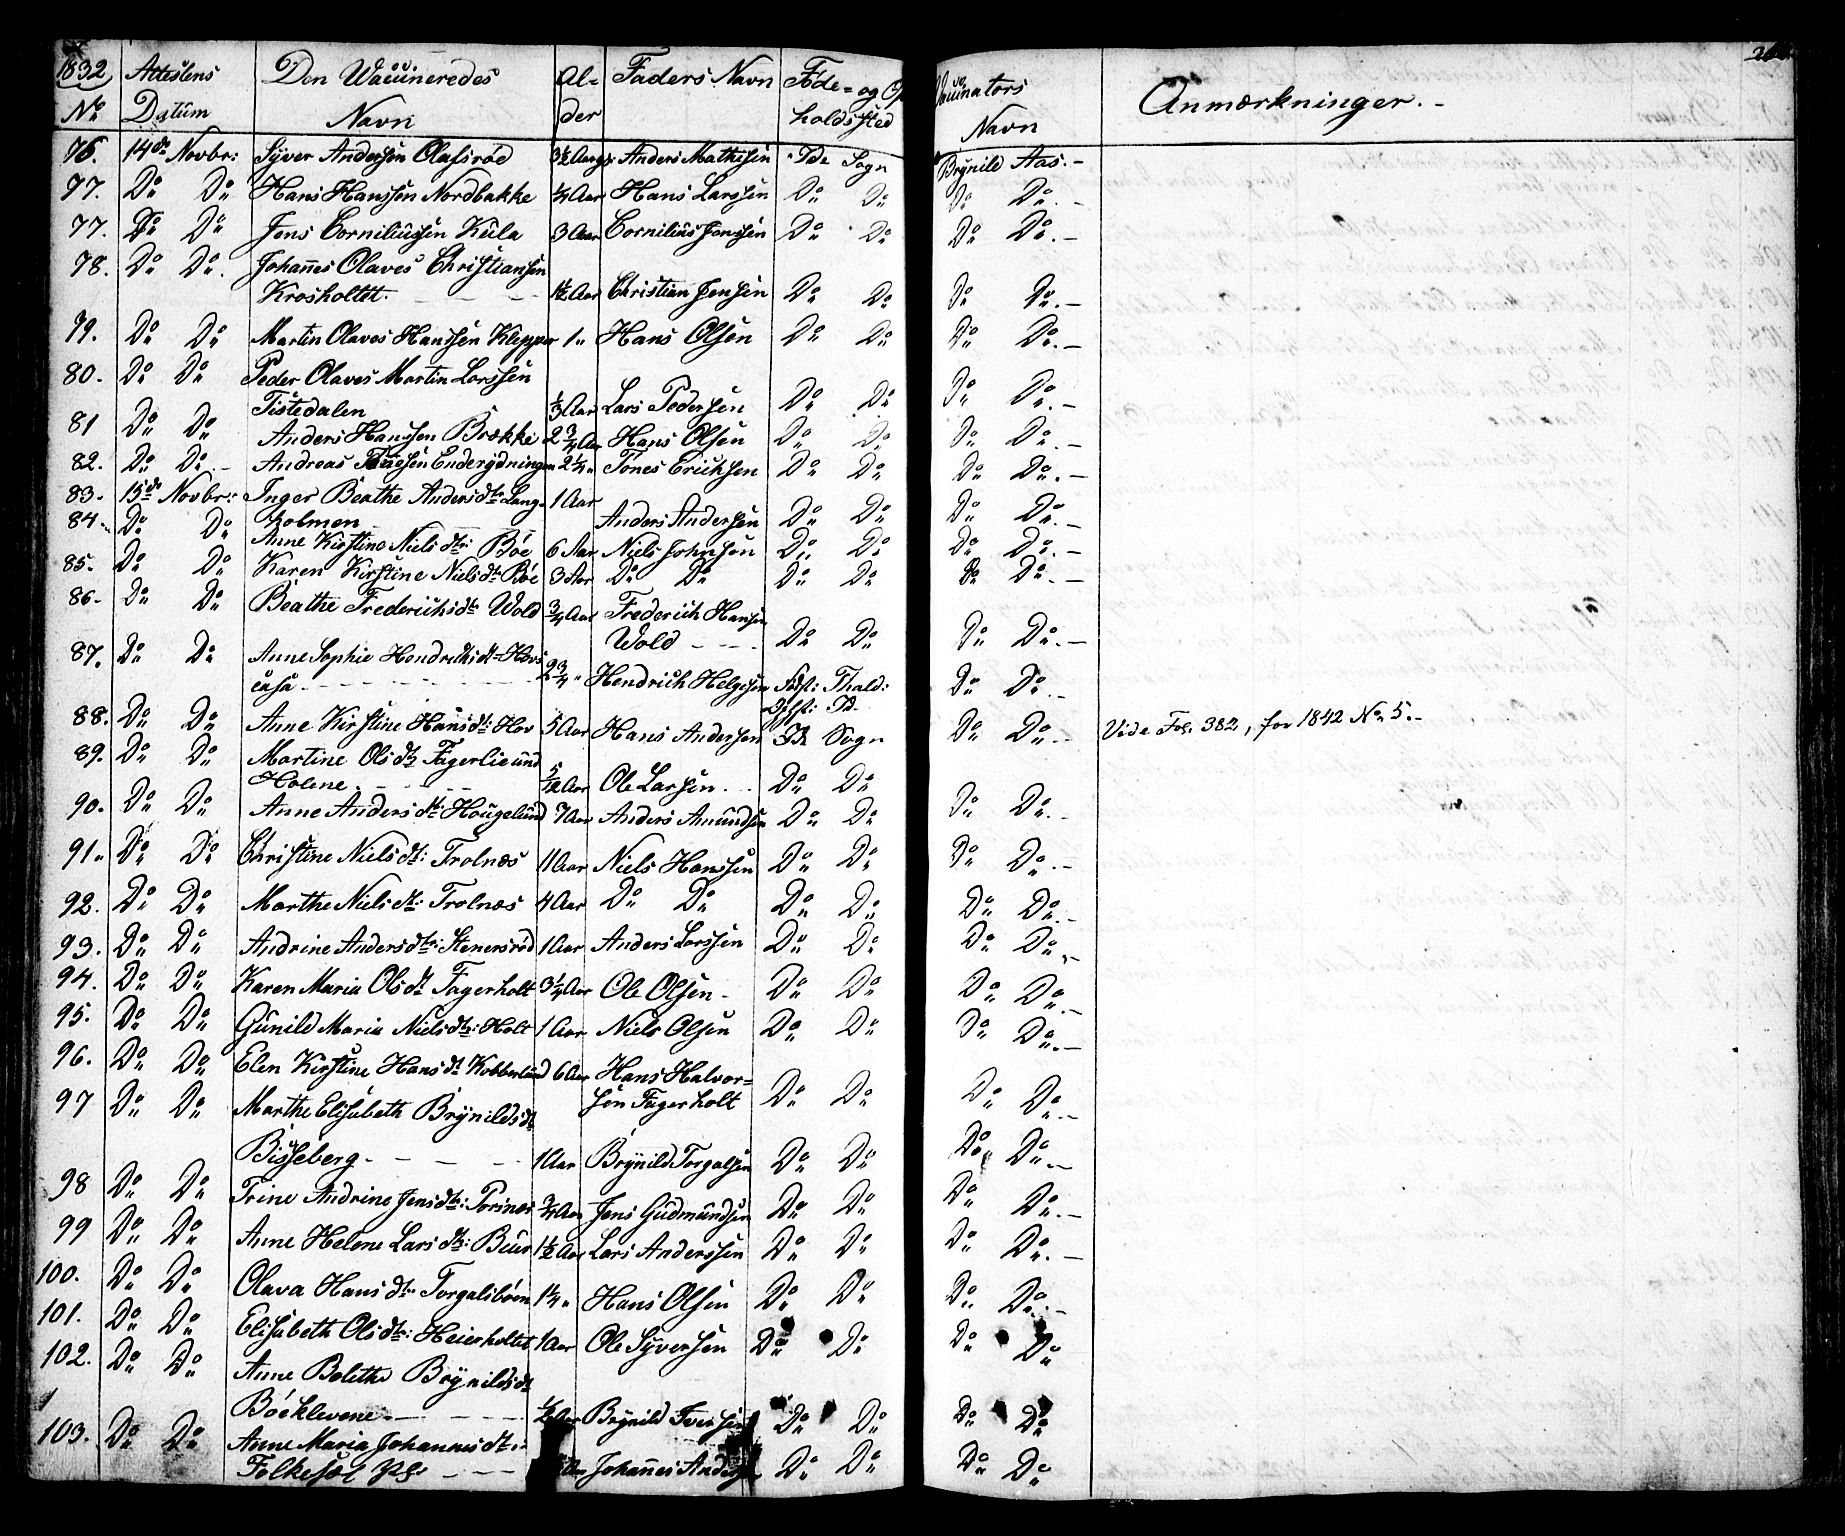 1832 Attestens Den Vaccineredes Al- Faders Navn Føde- og Op Vaccinators Anmærkninger.-
No Datum Navn der holdssted Navn
76. 14de Novbr: Syver Andersen Olasrød 3½ Aar Anders Mathisen Ide Sogn Brynild Aas.-
77. Do Do Hans Hanssen Nordbakke ¼ Aar Hans Larssen Do Do Do Do.-
77. Do Do Jens Corneliussen Kula 3 Aar Cornilius Jenssen Do Do Do Do.-
78. Do Do. Johannes Olaves Christiansen
Krosholtet. - - - 1½ Aar Christian Jensen Do Do Do Do.-
79. Do Do Martin Olaves Hanssen Klepper 1 " Hans Olsen Do Do Do Do.-
80. Do Do Peder Olaves Martin Larssen
Tistedalen ⅓ Aar Lars Pedersen Do Do Do Do.-
81 Do Do Anders Hanssen Brække 2¾ Aar Hans Olsen Do Do Do Do.-
82. Do Do.- Andreas Enderødningen 2¼ " Tønes Erichsen Do Do Do Do.-
83. 15de Novbr: Inger Beathe Andersdtr Lang- 1 Aar
holmen Anders Andersen Do Do Do Do.-
84. Do Do Anne Kirstine Nielsdtr: Bøe 6 Aar Niels Johnsen Do Do Do Do.-
85. Do Do Karen Kirstine Nielsdtr Bøe 3 Aar Do Do Do Do Do Do.-
86. Do Do Beathe Frederichsdtr Wold ¾ Aar Frederich Hansen
Wold - - - Do Do Do Do.-
87. Do Do Anne Sophie Hendrichsdtr Hovs
casa - - - 2¾ " Hendrich Helgesen Fødst: Thald: Do Do.-
Opst: Id.
88. Do Do Anne Kirstine Hansdtr: Hov 5 Aar Hans Andersen Ide Sogn Do Do.- Vide Fol. 382, for 1842 No 5.-
89. Do Do Martine Olsdtr Fagerlie und
Holene - - - Aar Ole Larsen . . Do Do
90. Do Do Anne Andersdtr: Hougelund 7 Aar Anders Amundsen Do Do Do Do.-
91. Do Do Christine Nielsdtr: Trolnæs 11 Aar Niels Hanssen Do Do Do Do.-
92. Do Do Marthe Nielsdtr: Trolnæs 4 Aar Do Do Do Do Do Do.-
93. Do Do Andrine Andersdtr: Stenersrød 1 Aar Anders Larssen Do Do Do Do.-
94. Do Do Karen Maria Olsdtr Fagerholt 3¼ Aar Ole Olsen - Do Do Do Do.-
95. Do Do Gunild Maria Nielsdtr: Holt 1 Aar Niels Olsen Do Do Do Do.-
96. Do Do Elen Kirstine Hansdtr Kobberlund 6 Aar Hans Halvor=
sen Fagerholt Do Do Do Do.-
97 Do Do Marthe Elisabeth Brynildsdtr
Bisseberg - - - 1 Aar Brynild Torgalsen Do Do Do Do.-
98 Do Do Trine Andrine Jensdtr: ¾ Aar Jens Gudmundsen Do Do Do Do.-
99 Do Do Anne Helene Larsdtr: 1½ Aar Lars Anderssen Do Do Do Do.-
100. Do Do Olava Hansdtr Torgalsbøen 1¼ " Hans Olsen Do Do Do Do.-
101. Do Do Elisabeth Olsdtr: Heierholtet 1 Aar Ole Syversen Do Do Do Do
102. Do Do Anne Bolethe Brynildsdtr
Bøeklevene - - - ½ Aar Brynild Iversen Do Do Do Do
103. Do Do Anne Maria Johannesdtr:
Folkesæ - - - Aar Johannes Do Do Do Do